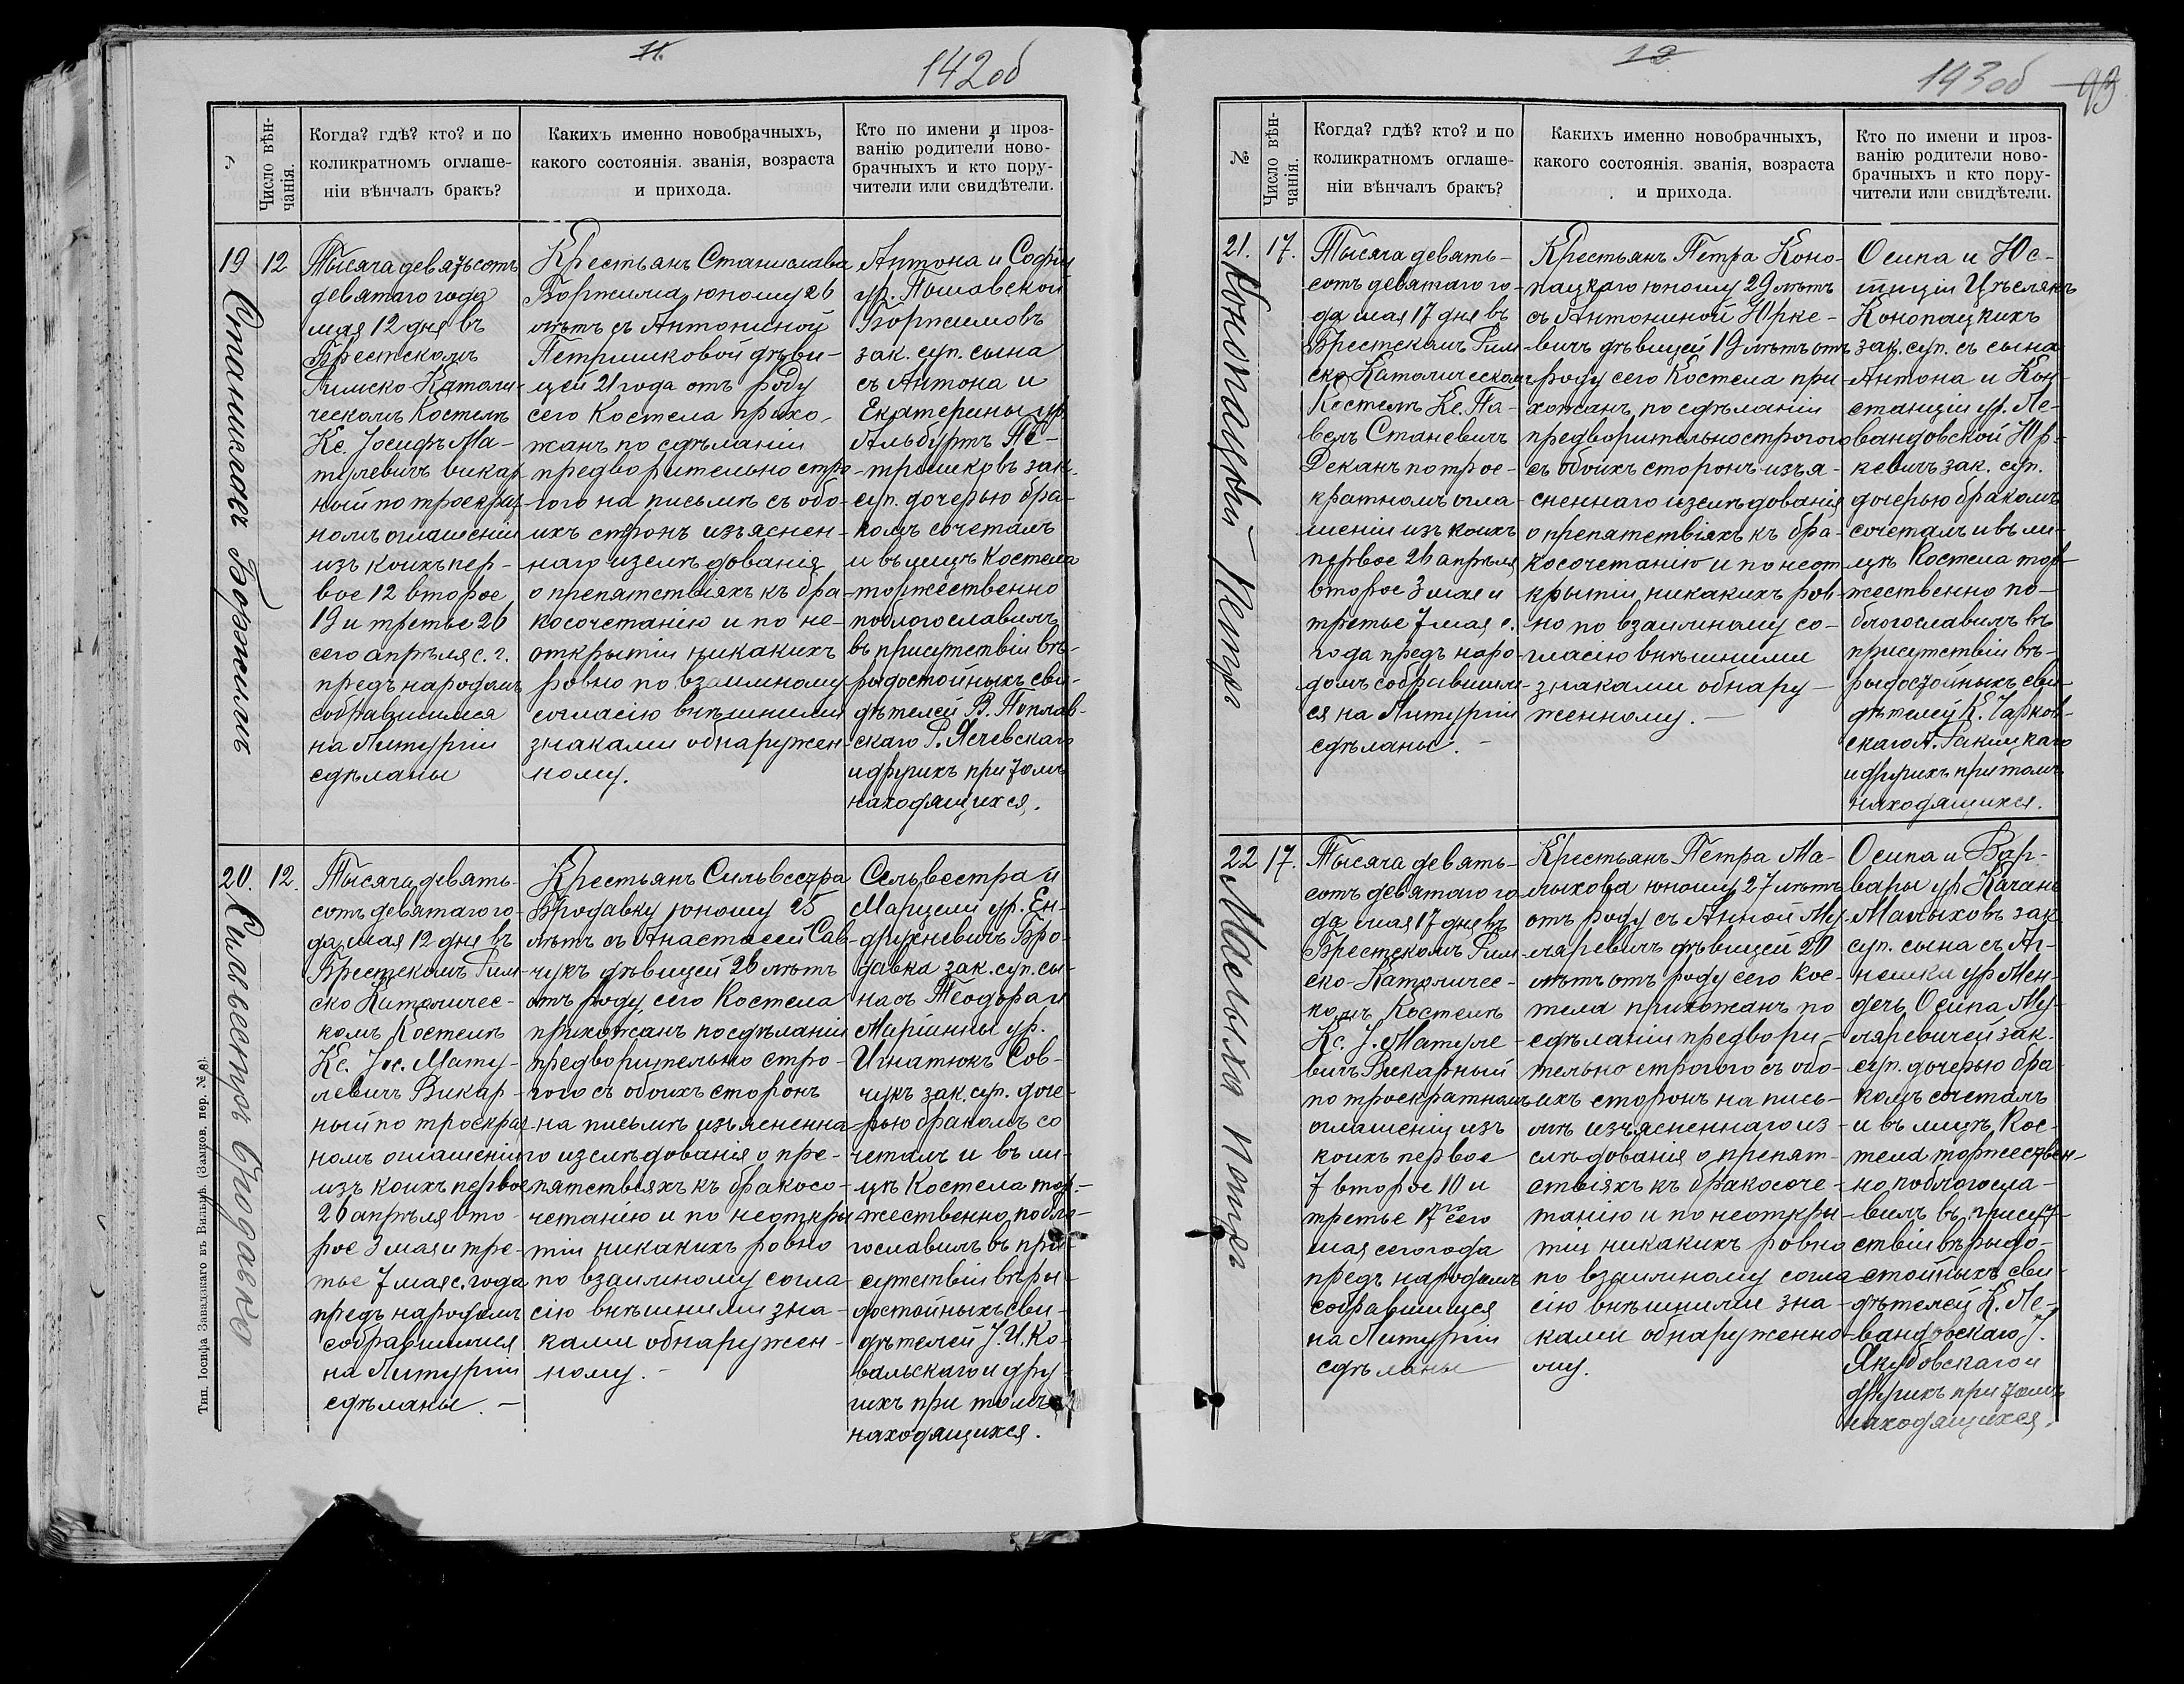 11.
142об
№
Число вѣн-
чанія.
Когда? гдѣ? кто? и по
коликратномъ оглаше-
ніи вѣнчалъ бракъ?
Какихъ именно новобрачныхъ,
какого состоянія. званія, возраста
и прихода.
Кто по имени и проз-
ванію родители ново-
брачныхъ и кто пору-
чители или свидѣтели.
19
Станиславъ Боржимъ
12
Тысяча девятьсотъ
девятаго года
мая 12 дня въ
Брестскомъ
Римско Католи-
ческомъ Костелѣ
Кс. Іосифъ Ма-
тулевичъ викар-
ный по троекрат-
номъ оглашеніи
изъ коихъ пер-
вое 12 второе
19 и третье 26
сего апрѣля с. г.
предъ народомъ
собравшимся
на Литургіи
сдѣланы
Крестьянъ Станислава
Боржима, юношу 26
лѣтъ съ Антониной
Петришковой дѣви-
цей 21 года отъ роду
сего Костела прихо-
жанъ по сдѣланіи
предворительно стро-
гого на письмѣ съ обо-
ихъ сторонъ изъяснен-
наго изслѣдованія
о препятствіяхъ къ бра-
косочетанію и по не-
открытіи никакихъ
ровно по взаимному
согласію внѣшними
знаками обнаружен-
ному.
Антона и Софіи
ур. Пошавской
Боржимовъ
зак. суп. сына
съ Антона и
Екатерины ур.
Альбуртъ Пе-
тришковъ зак.
суп. дочерью бра-
комъ сочеталъ
и въ лицѣ Костела
торжественно
поблогославилъ
въ присутствіи вѣ-
рыдостойныхъ сви-
дѣтелей В. Поплав-
скаго Р. Ячевскаго
и другихъ при томъ
находящихся.
20.
Сильвестръ Бродавко
12.
Тысяча девять-
сотъ девятаго го-
да мая 12 дня въ
Брестскомъ Рим-
ско Католичес-
комъ Костелѣ
Кс. Іос. Мату-
левичъ Викар-
ный по троекрат-
номъ оглашеніи
изъ коихъ первое
26 апрѣля вто-
рое 3 мая и тре-
тье 7 мая с. года
предъ народомъ
собравшимся
на Литургіи
сдѣланы. —
Крестьянъ Сильвестра
Бродавку юношу 25
лѣтъ съ Анастасіей Сав-
чукъ дѣвицей 26 лѣтъ
отъ роду сего Костела
прихожанъ по сдѣланіи
предворительно стро-
гого съ обоихъ сторонъ
на письмѣ изъясненна-
го изслѣдованія о пре-
пятствіяхъ къ бракосо-
четанію и по неоткры-
тіи никакихъ ровно
по взаимному согла-
сію внѣшними зна-
ками обнаружен-
ному. —
Сельвестра и
Марцели ур. Ен-
друхневичъ Бро-
давка зак. суп. сы-
на съ Теодора и
Маріанны ур.
Игнатюкъ Сов-
чукъ зак. суп. доче-
рью бракомъ со
четалъ и въ ли-
цѣ Костела тор-
жественно побло-
гославилъ въ при-
сутствіи вѣры-
достойныхъ сви-
дѣтелей J. И. Ко-
вальскаго и дру-
гихъ при томъ
находящихся.
Тип. Іосифа Завадзкаго въ Вильнѣ. (Замков. пер. № 8).
12
143об
93
№
Число вѣн-
чанія.
Когда? гдѣ? кто? и по
коликратномъ оглаше-
ніи вѣнчалъ бракъ?
Какихъ именно новобрачныхъ,
какого состоянія. званія, возраста
и прихода.
Кто по имени и проз-
ванію родители ново-
брачныхъ и кто пору-
чители или свидѣтели.
21.
Конопацкій Петръ
17.
Тысяча девять-
сотъ девятаго го-
да мая 17 дня въ
Брестскомъ Рим-
ско-Католическомъ
Костелѣ Кс. Па-
велъ Станевичъ
Деканъ по трое-
кратномъ огла-
шеніи изъ коихъ
первое 26 апрѣля
второе 3 мая и
третье 7 мая с.
года предъ наро-
домъ собравшим-
ся на Литургіи
сдѣланы. —
Крестьянъ Петра Коно-
пацкаго юношу 29 лѣтъ
съ Антониной Юрке-
вичъ дѣвицей 19 лѣтъ отъ
роду сего Костела при-
хожанъ, по сдѣланіи
предворительно строгого
съ обоихъ сторонъ изъя-
сненнаго изслѣдованія
о препятствіяхъ къ бра-
косочетанію и по неот-
крытіи никакихъ ров-
но по взаимному со-
гласію внѣшними
знаками обнару-
женному. —
Осипа и Юс-
тиціи Цѣслякъ
Конопацкихъ
зак. суп. съ сына
Антона и Кон-
станціи ур. Ле-
вандовской Юр-
кевичъ зак. суп.
дочерью бракомъ
сочеталъ и въ ли-
цѣ Костела тор-
жественно по-
блогославилъ въ
присутствіи вѣ-
рыдостойныхъ сви-
дѣтелей К. Чарков-
скаго А. Ракицкаго
и другихъ при томъ
находящихся.
22
Малыха Петръ
17.
Тысяча девять-
сотъ девятаго го-
да мая 17 дня въ
Брестскомъ Рим-
ско-Католичес-
комъ Костелѣ
Кс. J. Матуле-
вичъ Викарный
по троекратномъ
оглашеніи изъ
коихъ первое
7 второе 10 и
третье 17го сего
мая сего года
предъ народомъ
собравшимся
на Литургіи
сдѣланы
Крестьянъ Петра Ма-
лыхова юношу 27 лѣтъ
отъ роду съ Анной Му-
ляревичъ дѣвицей 20
лѣтъ отъ роду сего Кос-
тела прихожанъ по
сдѣланіи предвори-
тельно строгого съ обо-
ихъ сторонъ на пись-
мѣ изъясненнаго из-
слѣдованія о препят-
ствіяхъ къ бракосоче-
танію и по неоткры-
тіи никакихъ ровно
по взаимному согла-
сію внѣшними зна-
ками обнаруженно-
му.
Осипа и Вар-
вары ур Качанъ
Малыховъ зак
суп. сына съ Аг-
нешки ур Мен-
дечь Осипа Му-
ляревичей зак.
суп. дочерью бра-
комъ сочеталъ
и въ лицѣ Кос-
тела торжествен-
но поблогосла-
вилъ въ присут-
ствіи вѣрыдо-
стойныхъ сви-
дѣтелей К. Ле-
вандовскаго J.
Якубовскаго и
другихъ при томъ
находящихся.